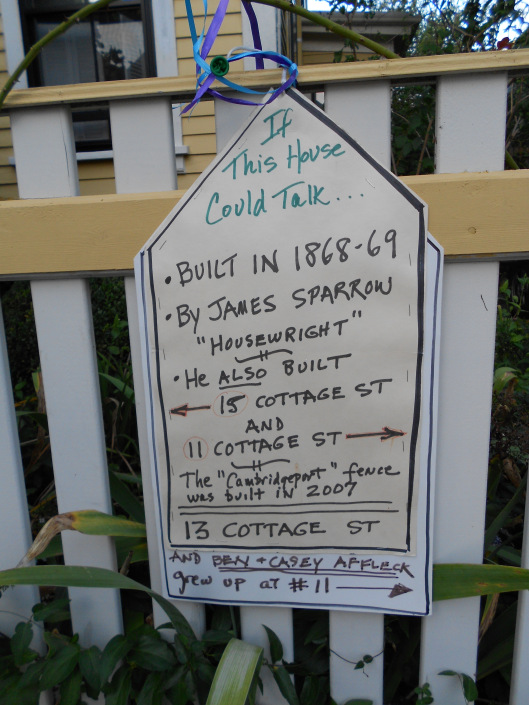 If
This House
Could Talk...
• BUILT IN 1868-69
• By JAMES SPARROW
"HOUSEWRIGHT"
• He ALSO BUILT
← 15 COTTAGE ST
AND
11 COTTAGE ST →
The "Cambridgeport" fence
was built in 2007
13 COTTAGE ST
AND BEN + CASEY AFFLECK
grew up at #11 →